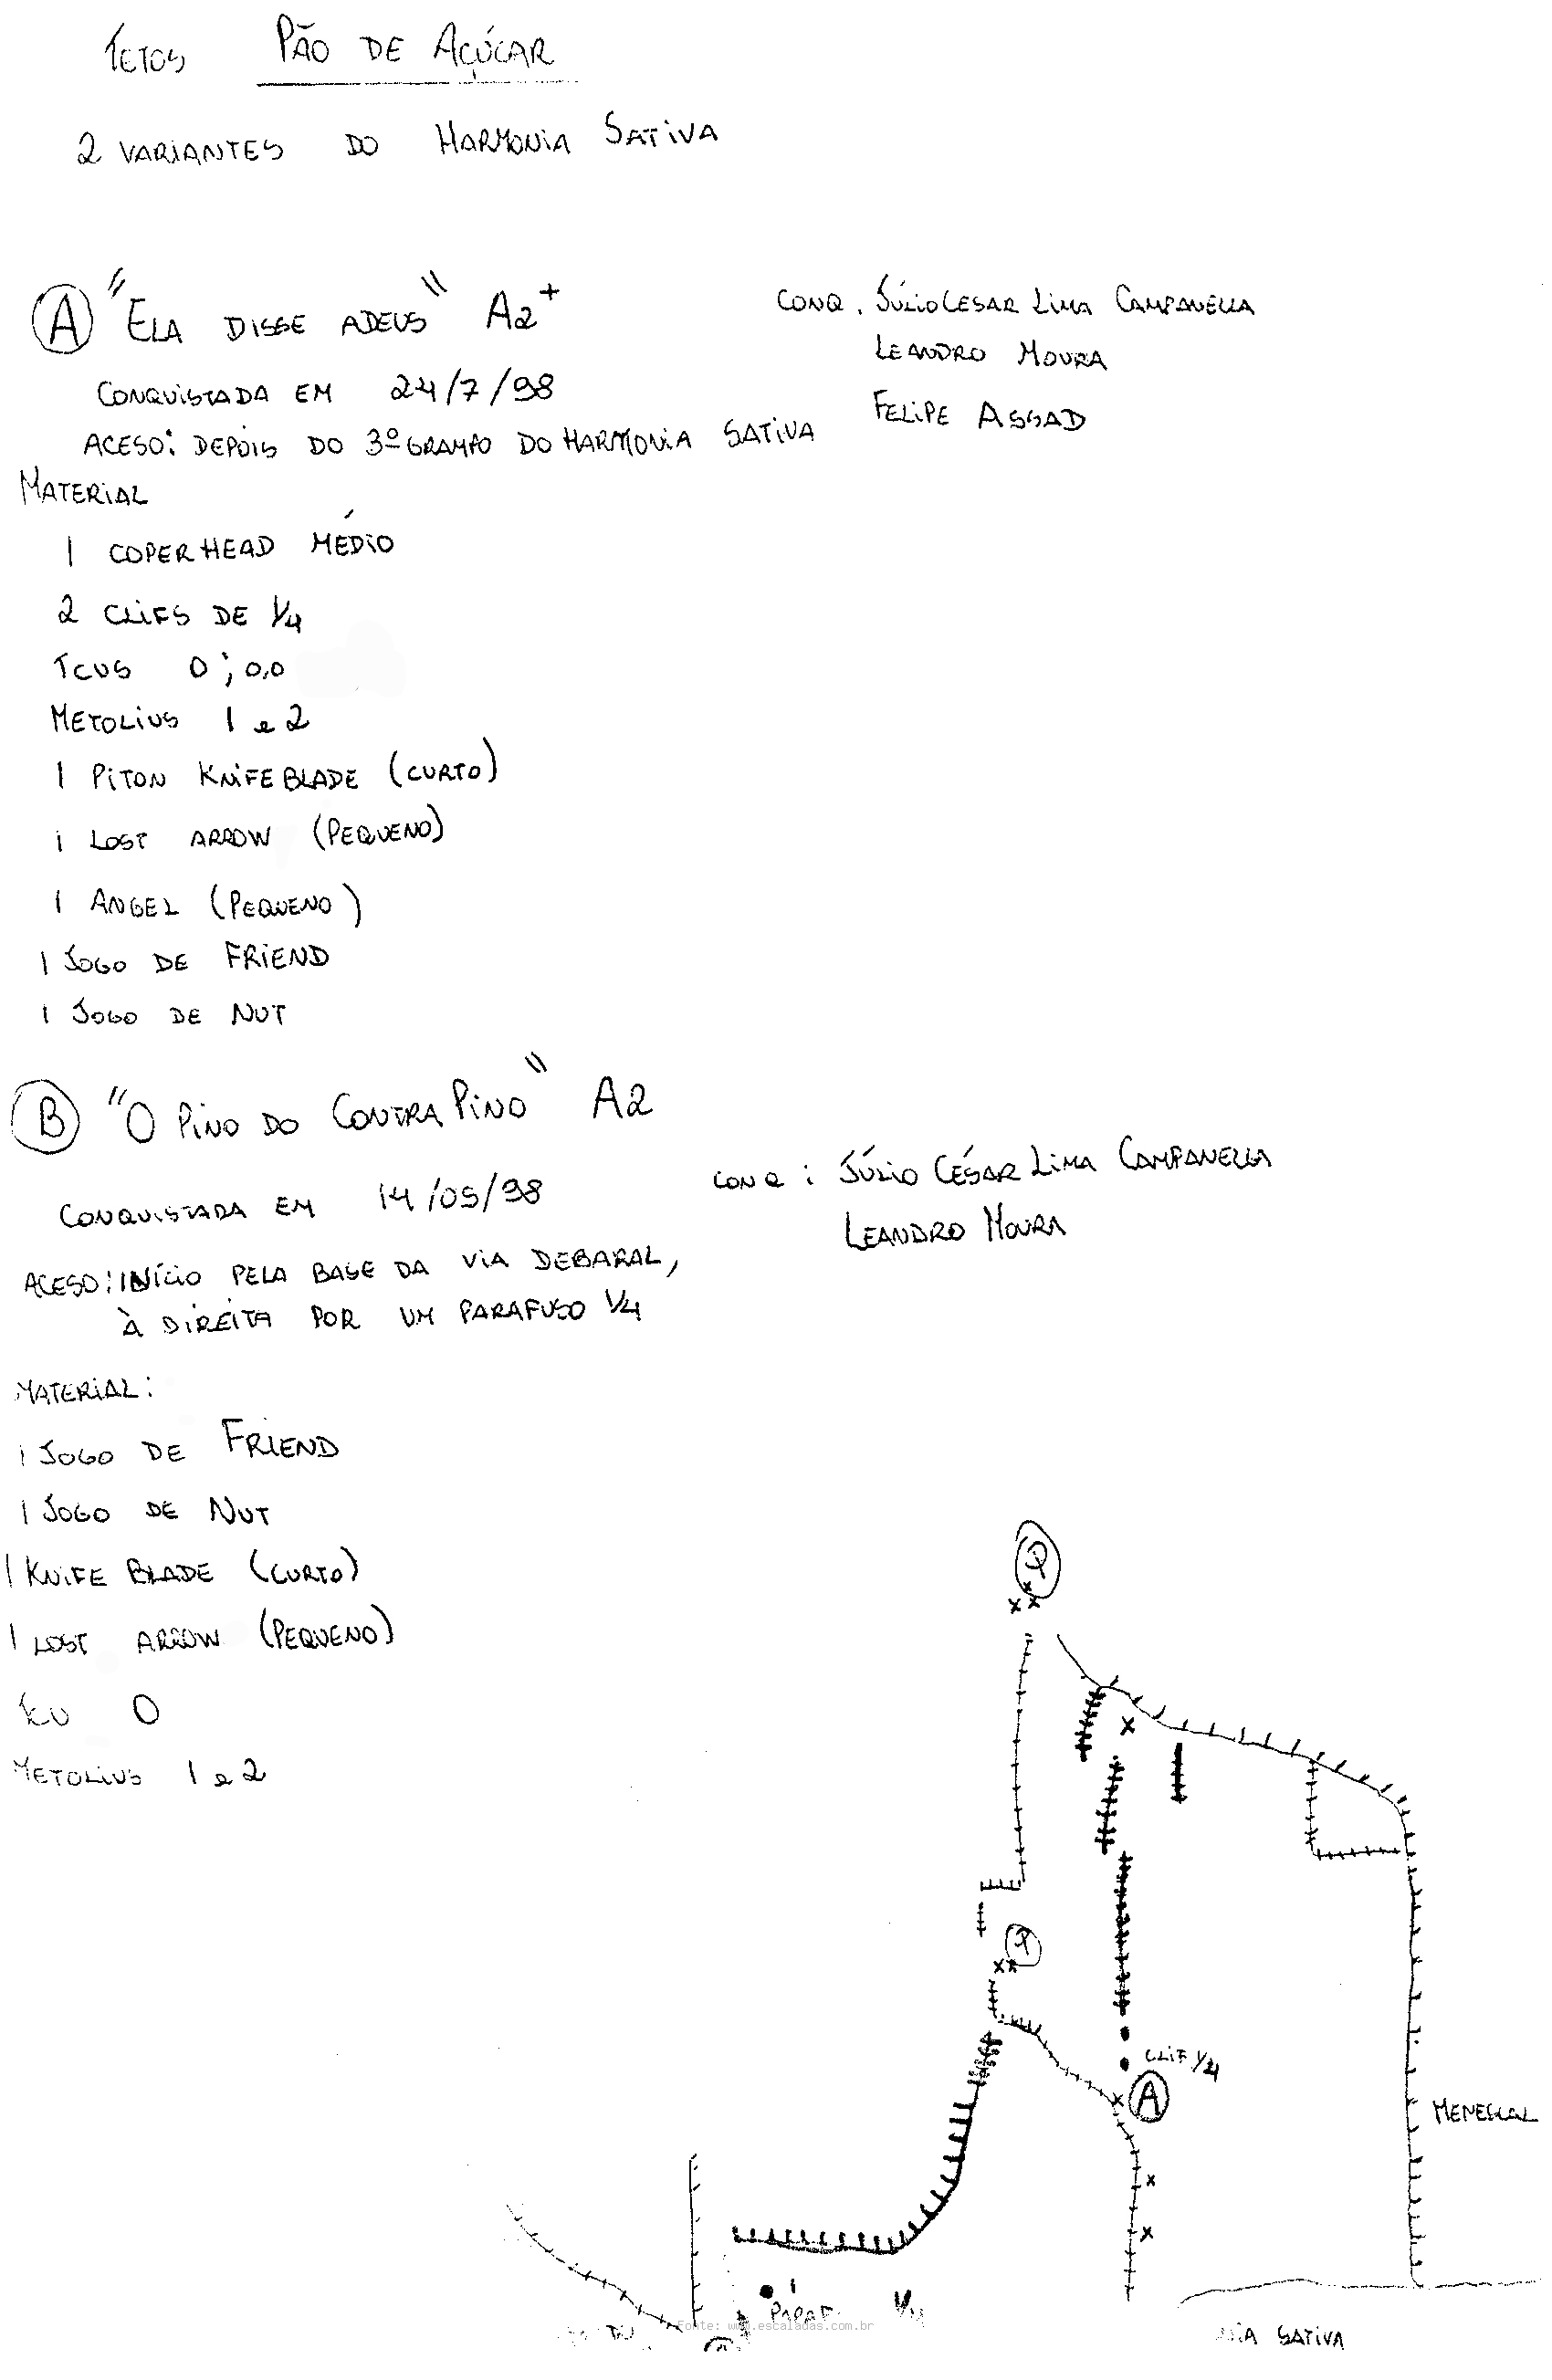 TETOS PÃO DE AÇÚCAR
2 VARIANTES DO HARMONIA SATIVA
A "ELA DISSE ADEUS" A2+
CONQ. JÚLIO CESAR LIMA CAMPANELLA
LEANDRO MOURA
FELIPE ASSAD
CONQUISTADA EM 24/7/98
ACESO: DEPOIS DO 3º GRAMPO DO HARMONIA SATIVA
MATERIAL
1 COPERHEAD MÉDIO
2 CLIFS DE 1/4
TCUS 0; 0,0
METOLIUS 1 e 2
1 PITON KNIFEBLADE (CURTO)
1 LOST ARROW (PEQUENO)
1 ANGEL (PEQUENO)
1 JOGO DE FRIEND
1 JOGO DE NUT
B "O PINO DO CONTRA PINO" A2
CONQ: JÚLIO CÉSAR LIMA CAMPANELLA
LEANDRO MOURA
CONQUISTADA EM 14/09/98
ACESO: INÍCIO PELA BASE DA VIA DEBARAL,
À DIREITA POR UM PARAFUSO 1/4
MATERIAL:
1 JOGO DE FRIEND
1 JOGO DE NUT
1 KNIFE BLADE (CURTO)
1 LOST ARROW (PEQUENO)
TCU 0
METOLIUS 1 e 2
CLIF 1/4
A
MENESCAL
PARAF. 1/4
Fonte: www.escaladas.com.br
SATIVA